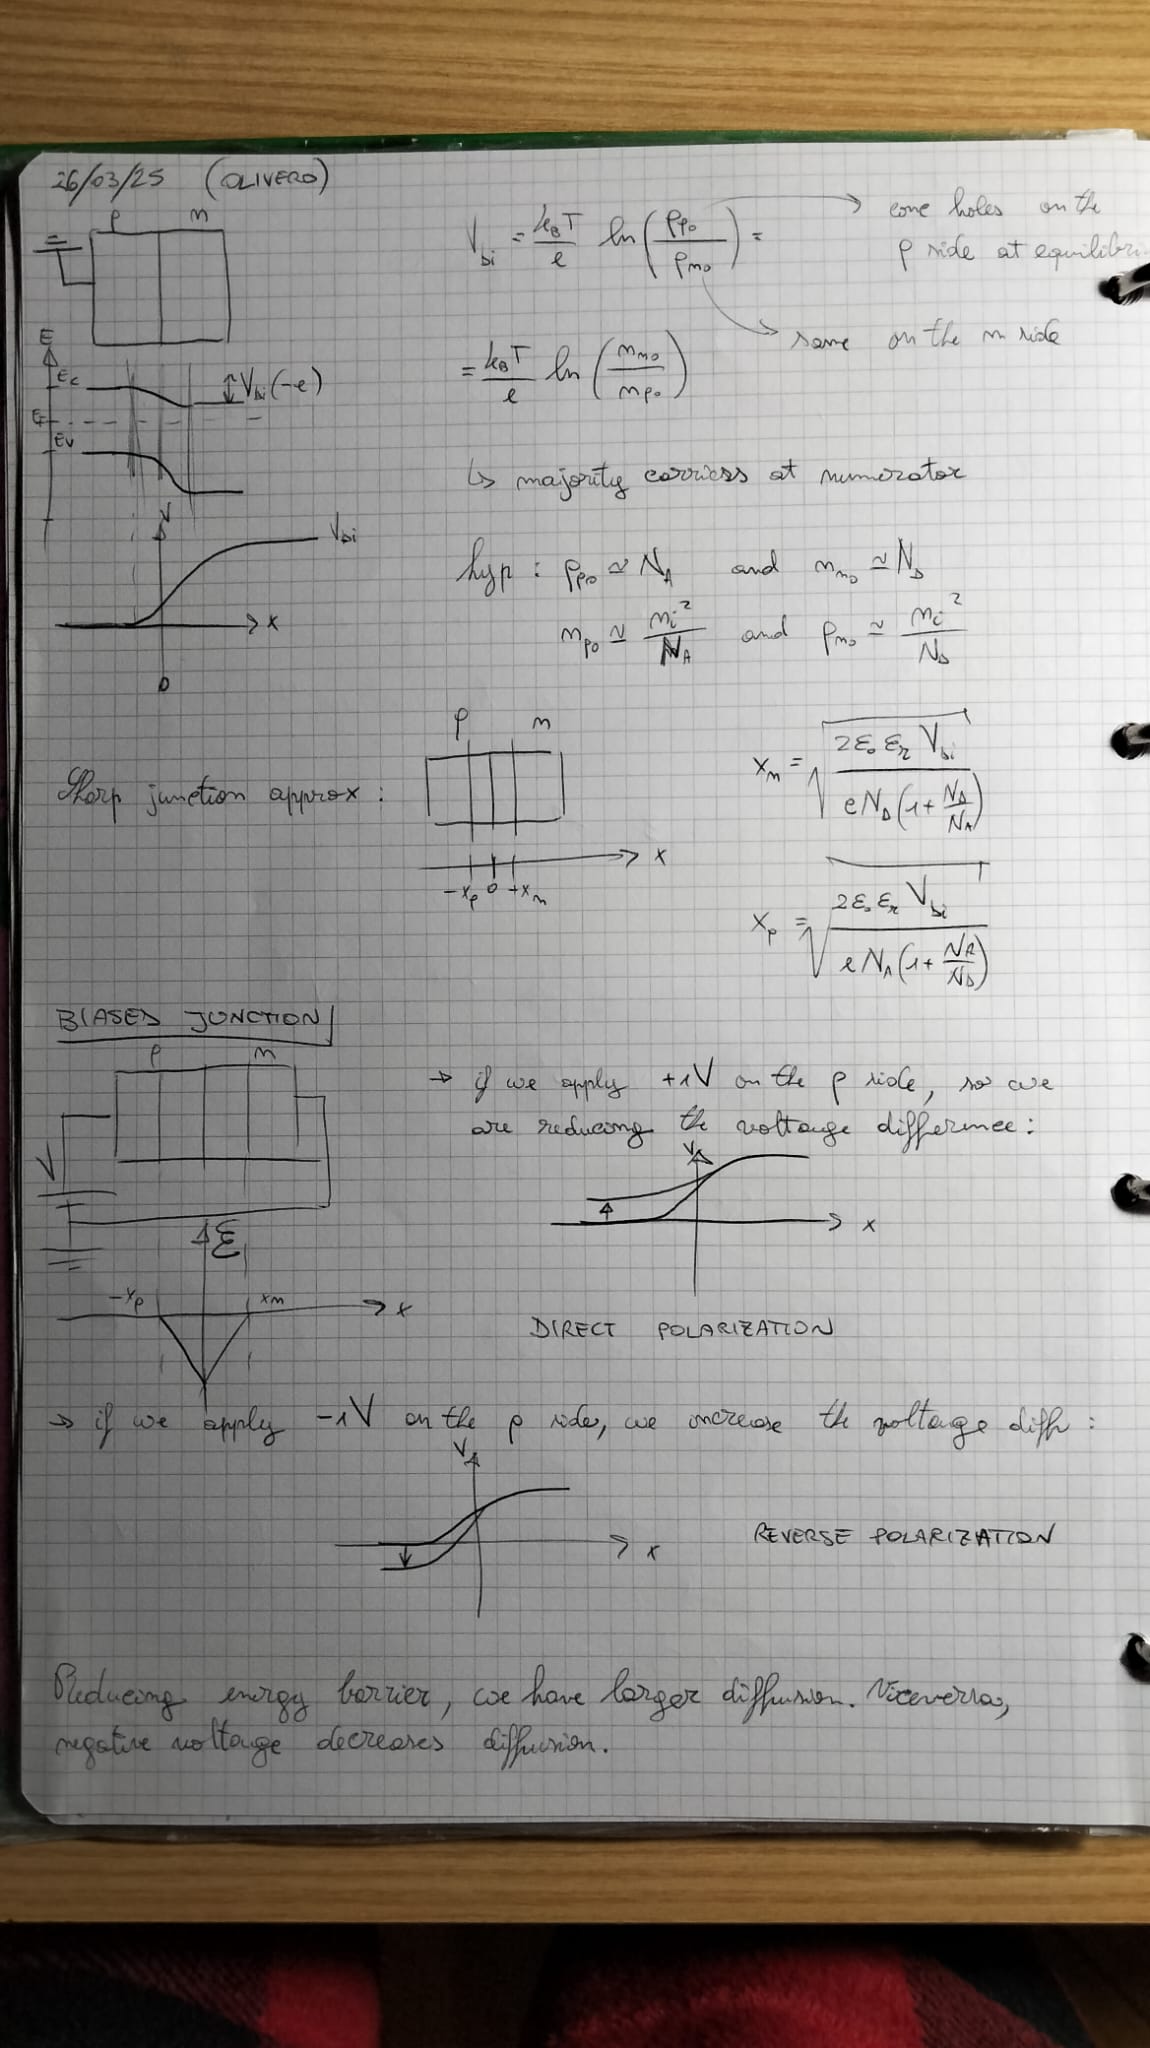 26/03/25 (OLIVERO)
p n
V_bi = k_B T / e ln(p_p0 / p_n0) = → conc holes on the p side at equilibri
→ same on the n side
= k_B T / e ln(n_n0 / n_p0)
E
E_C
V_bi(-e)
E_F
E_V
↳ majority carriers at numerator
V
V_bi
x
0
hyp: p_p0 ≃ N_A and n_n0 ≃ N_D
n_p0 ≃ n_i^2 / N_A and p_n0 ≃ n_i^2 / N_D
Sharp junction approx:
p n
-x_p 0 +x_n x
x_n = √(2ε_0 ε_r V_bi / e N_D (1 + N_D/N_A))
x_p = √(2ε_0 ε_r V_bi / e N_A (1 + N_A/N_D))
BIASED JUNCTION
p n
V
ℰ
-x_p x_n x
→ if we apply +1V on the p side, so we
are reducing the voltage difference:
V
x
DIRECT POLARIZATION
→ if we apply -1V on the p side, we increase the voltage diff:
V
x
REVERSE POLARIZATION
Reducing energy barrier, we have larger diffusion. Viceversa,
negative voltage decreases diffusion.